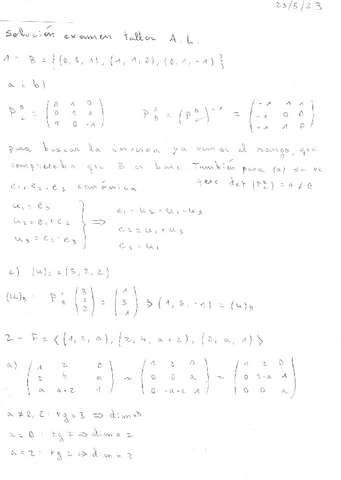 23/5/23
solución examen taller A.L.
1- B = {(0,0,1), (1,1,0), (0,1,-1)}
a i b)
P = ( 0 1 0 P = (P)⁻¹ = ( -1 1 1
0 1 1 -1 0 0
1 0 -1 ) -1 1 0 )
para buscar la inversa ya vemos el rango, que
comprueba que B es base. También para (a) se ve
que det (P) = 1 ≠ 0
e₁, e₂, e₃ canónica
u₁ = e₃
u₂ = e₁ + e₂ ⇒ e₂ = u₁ + u₃
u₃ = e₂ - e₃ e₃ = u₁
c) (u) = (3, 2, 2)
(u)B = P (3 2 2) = (1 3 -1) (1, 3, -1) = (u)B
2- F = <(1, 2, a), (2, 4, a+2), (0, a, 1)>
a) ( 1 2 0 ~ ( 1 2 0 ~ ( 1 2 0
2 4 a 0 0 a 0 2-a 1
a a+2 1 ) 0 -a+2 1 ) 0 0 a )
a ≠ 0, 2: rg = 3 ⇒ dim = 3
a = 0: rg 2 ⇒ dim = 2
a = 2: rg 2 ⇒ dim = 2